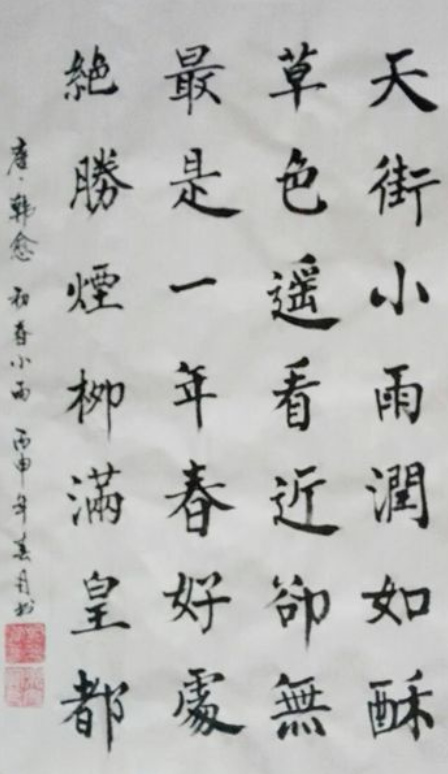 天街小雨潤如酥
草色遥看近卻無
最是一年春好處
絶勝煙柳滿皇都
唐·韩愈 初春小雨 丙申年春月书